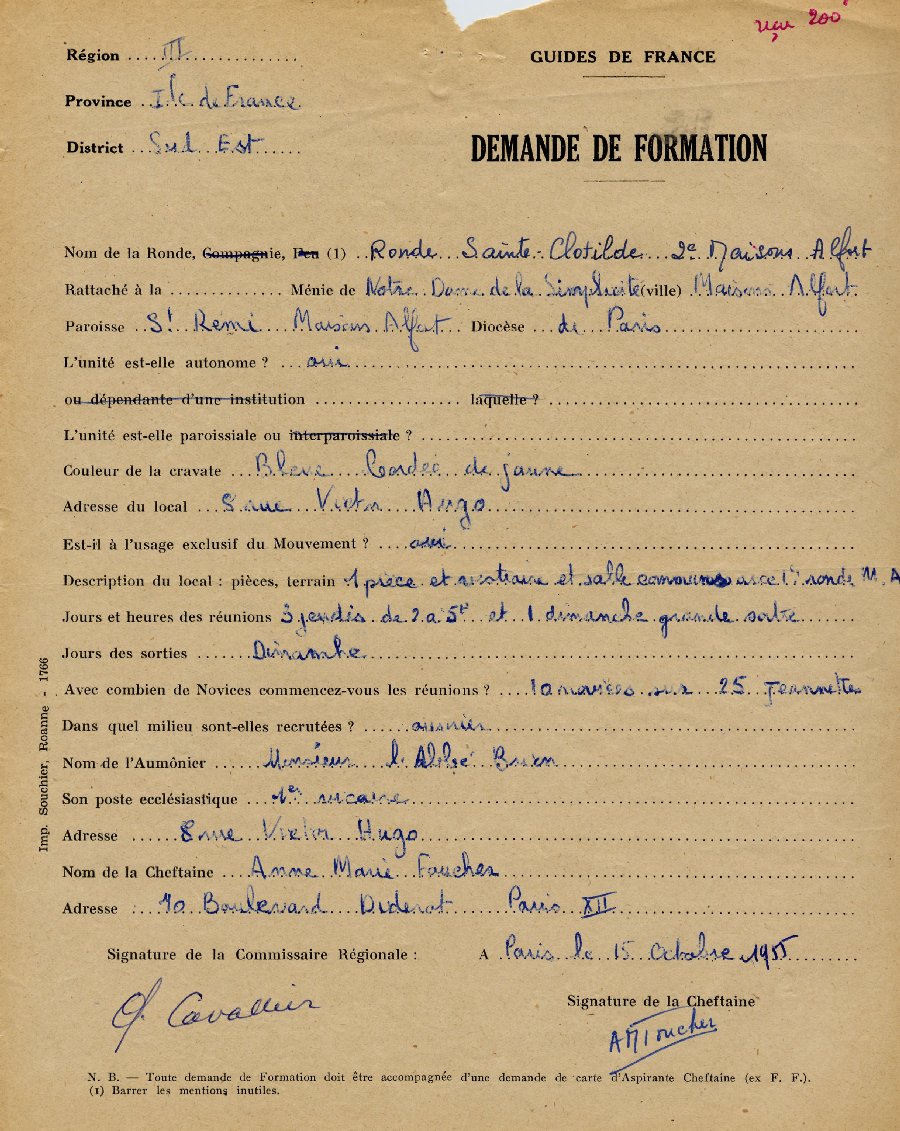 reçu 200
Région III
GUIDES DE FRANCE
Province Ile de France
District Sud Est
DEMANDE DE FORMATION
Nom de la Ronde, Compagnie, Feu (1) Ronde Sainte-Clotilde 2e Maisons Alfort
Rattaché à la Ménie de Notre Dame de la Simplicité (ville) Maisons Alfort
Paroisse St Remi Maisons Alfort Diocèse de Paris
L'unité est-elle autonome ? oui
ou dépendante d'une institution laquelle ?
L'unité est-elle paroissiale ou interparoissiale ?
Couleur de la cravate Bleue Cordée de jaune
Adresse du local 8 rue Victor Hugo
Est-il à l'usage exclusif du Mouvement ? oui
Description du local : pièces, terrain 1 pièce et vestiaire et salle commune avec 1re ronde M. A
Jours et heures des réunions 3 jeudis de 2 à 5h et 1 dimanche grande sortie
Jours des sorties Dimanche
Avec combien de Novices commencez-vous les réunions ? 10 novices sur 25 Jeannettes
Dans quel milieu sont-elles recrutées ? ouvrier
Nom de l'Aumônier Monsieur l'Abbé
Son poste ecclésiastique 1er vicaire
Adresse 8 rue Victor Hugo
Nom de la Cheftaine Anne Marie Foucher
Adresse 10 Boulevard Diderot Paris XII
Signature de la Commissaire Régionale : A Paris le 15 Octobre 1955
Signature de la Cheftaine
Cavallier
AMFoucher
N. B. — Toute demande de Formation doit être accompagnée d'une demande de carte d'Aspirante Cheftaine (ex F. F.).
(1) Barrer les mentions inutiles.
Imp. Souchier, Roanne - 1766